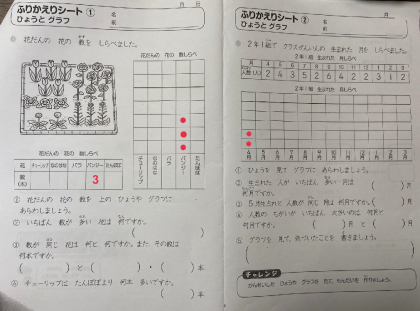 ふりかえりシート ①
月 日
ひょうと グラフ
名
前
① 花だんの 花の 数を しらべました。
花だんの 花の 数しらべ
チューリップ
なのはな
バラ
パンジー
たんぽぽ
花だんの 花の 数しらべ
花 チューリップ なのはな バラ パンジー たんぽぽ
数(本) 3
① 花だんの 花の 数を 上の ひょうや グラフに
あらわしましょう。
② いちばん 数が 多い 花は 何ですか。
( )
③ 数が 同じ 花は 何と 何ですか。また、その数は
何本ですか。
( )と( )・( )本
④ チューリップは たんぽぽより 何本 多いですか。
( )本
ふりかえりシート ②
月
ひょうと グラフ
名
前
① 2年1組で クラスぜんいんの 生まれた 月を しらべました。
2年1組 生まれた 月しらべ
月 4 5 6 7 8 9 10 11 12 1 2 3
人数(人) 2 4 3 5 2 6 4 2 2 3 1 2
2年1組 生まれた 月しらべ
4月 5月 6月 7月 8月 9月 10月 11月 12月 1月 2月 3月
① ひょうを 見て グラフに あらわしましょう。
② 生まれた 人が いちばん 多い 月は
何月ですか。 ( )月
③ 5月生まれと 人数が 同じ 月は 何月ですか。( )月
④ 人数の ちがいが いちばん 大きいのは 何月と
何月ですか。 ( )月と( )月
⑤ グラフを 見て、気づいたことを 書きましょう。
( )
チャレンジ